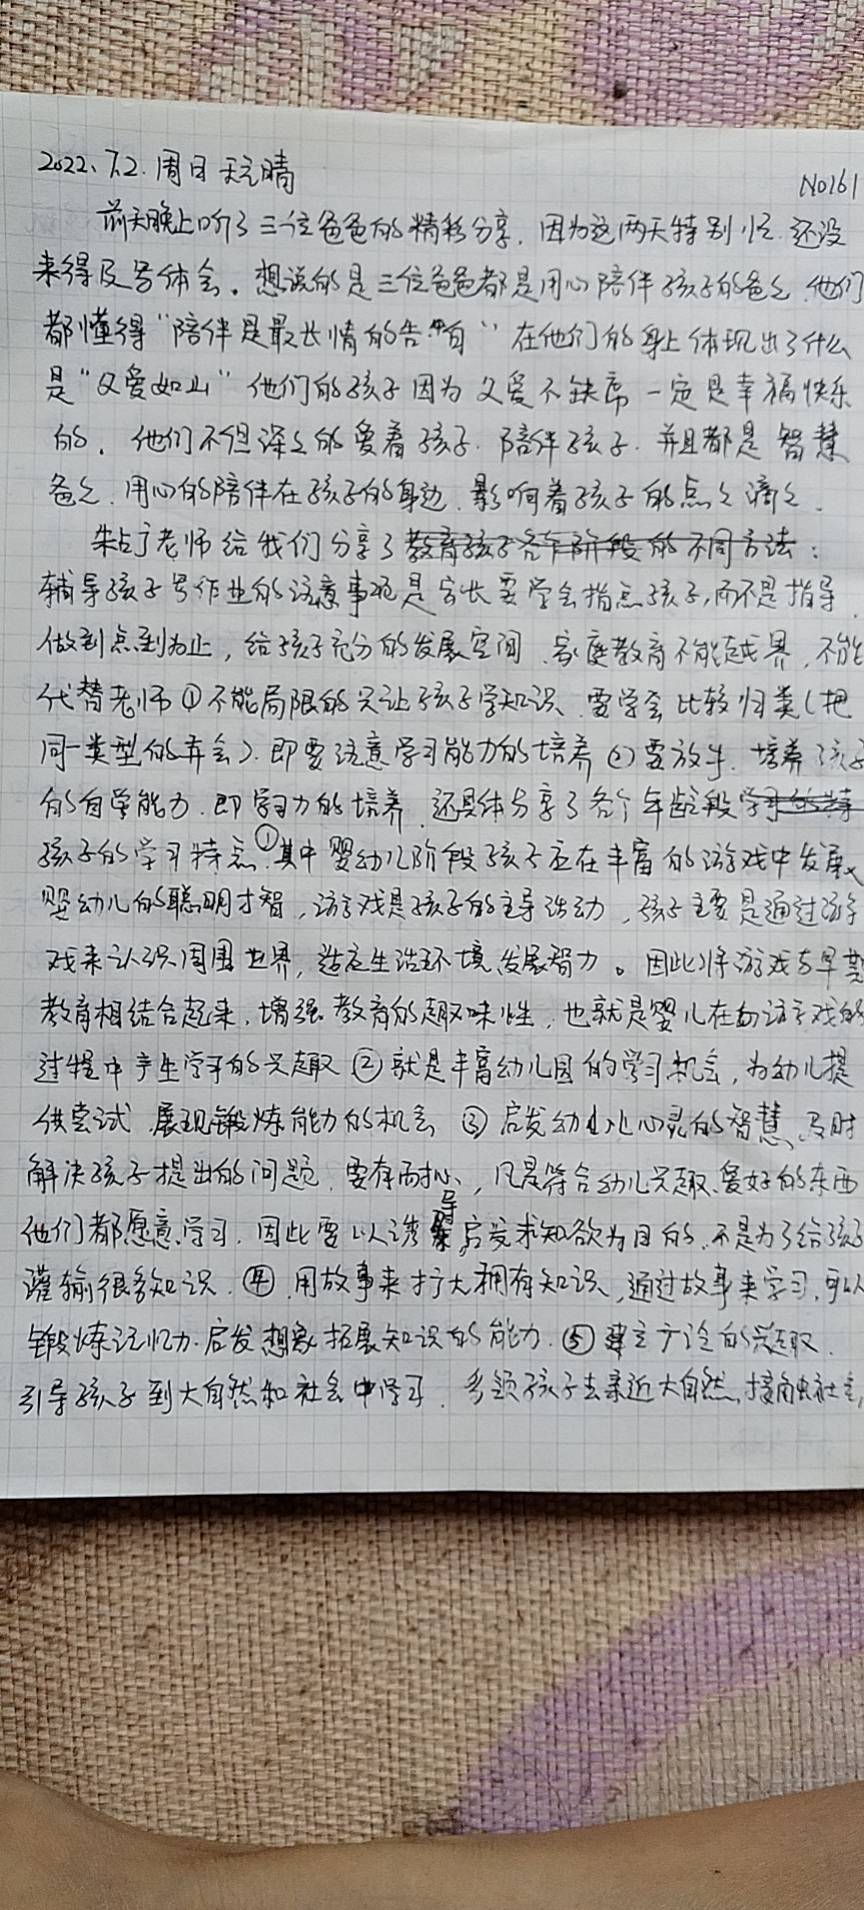 2022、7.2.周日 天气晴
No161
前天晚上听了三位爸爸的精彩分享，因为这两天特别忙.还没
来得及写体会。想说的是三位爸爸都是用心陪伴孩子的爸爸.他们
都懂得“陪伴是最长情的告白”在他们的身上体现出了什么
是“父爱如山”他们的孩子因为父爱不缺席一定是幸福快乐
的．他们不但深深的爱着孩子.陪伴孩子.并且都是智慧
爸爸.用心的陪伴在孩子的身边.影响着孩子的点点滴滴.
老师给我们分享了教育孩子各个阶段的不同方法：
辅导孩子写作业的注意事项是家长要学会指点孩子，而不是指导.
做到点到为止，给孩子充分的发展空间.家庭教育不能越界，不能
代替老师①不能局限的只让孩子学知识.要学会比较归类(把
同一类型的弄会).即要注意学习能力的培养②要放手.培养孩子
的自学能力.即学习力的培养.还具体分享了各个年龄段学习的特
孩子的学习特点①其中婴幼儿阶段孩子应在丰富的游戏中发展
婴幼儿的聪明才智，游戏是孩子的主导活动，孩子主要是通过游
戏来认识周围世界，适应生活环境、发展智力。因此将游戏与早期
教育相结合起来，增强教育的趣味性，也就是婴儿在游戏的
过程中产生学习的兴趣②就是丰富幼儿园的学习机会，为幼儿提
供尝试.展现锻炼能力的机会③启发幼儿心灵的智慧、及时
解决孩子提出的问题.要有耐心、，凡是符合幼儿兴趣、爱好的东西
他们都愿意学习.因此要以诱导启发求知欲为目的.不是为了给孩子
灌输很多知识.④.用故事来扩大拥有知识，通过故事来学习，可以
锻炼记忆力.启发想象.拓展知识的能力.⑤建立广泛的兴趣.
引导孩子到大自然和社会中学习．多领孩子去亲近大自然，接触社会，